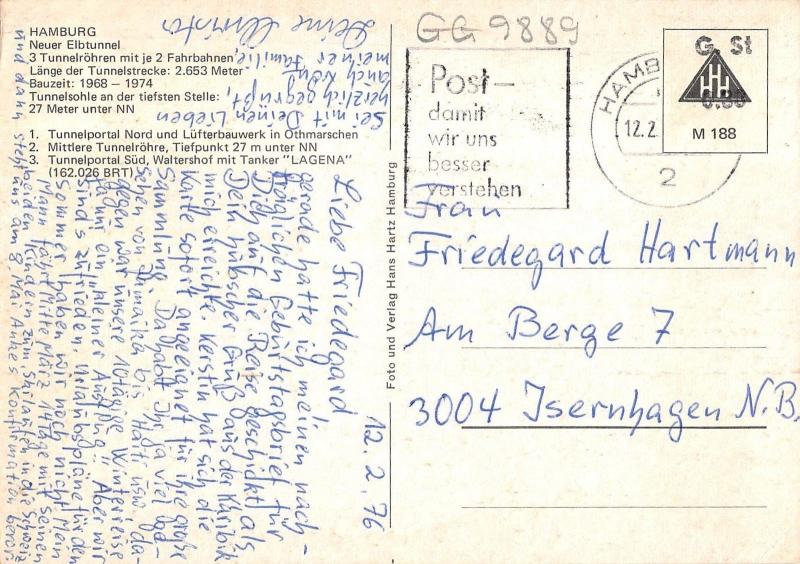 GG 9889
HAMBURG
Neuer Elbtunnel
3 Tunnelröhren mit je 2 Fahrbahnen,
Länge der Tunnelstrecke: 2.653 Meter
Bauzeit: 1968 – 1974
Tunnelsohle an der tiefsten Stelle:
27 Meter unter NN
1. Tunnelportal Nord und Lüfterbauwerk in Othmarschen
2. Mittlere Tunnelröhre, Tiefpunkt 27 m unter NN
3. Tunnelportal Süd, Waltershof mit Tanker "LAGENA"
(162.026 BRT)
Foto und Verlag Hans Hartz Hamburg
Post–
damit
wir uns
besser
verstehen
HAMB
12.2.
2
G. St
M 188
Frau
Friedegard Hartmann
Am Berge 7
3004 Isernhagen N.B.
12.2.76
Liebe Friedegard!
gerade hatte ich meinen nach-
träglichen Geburtstagsbrief für
Dich auf die Reise geschickt als
Dein hübscher Gruß aus der Karibik
mich erreichte. Kerstin hat sich die
Karte sofort angeeignet für ihre große
Sammlung. Da habt Ihr ja viel ge-
sehen von Jamaika bis Haiti usw. da-
gegen war unsere 10tägige Winterreise
ein "kleiner Ausflug". Aber wir
sind's zufrieden. Urlaubspläne für den
Sommer haben wir noch nicht. Mein
Mann fährt Mitte März 14 Tage mit seinen
beiden Kindern zum Skilaufen in die Schweiz
und dann steht uns am 8. Mai Antjes Konfirmation bevor.
Sei mit Deinen Lieben
herzlich gegrüßt,
auch von
meiner Familie,
Deine Christa